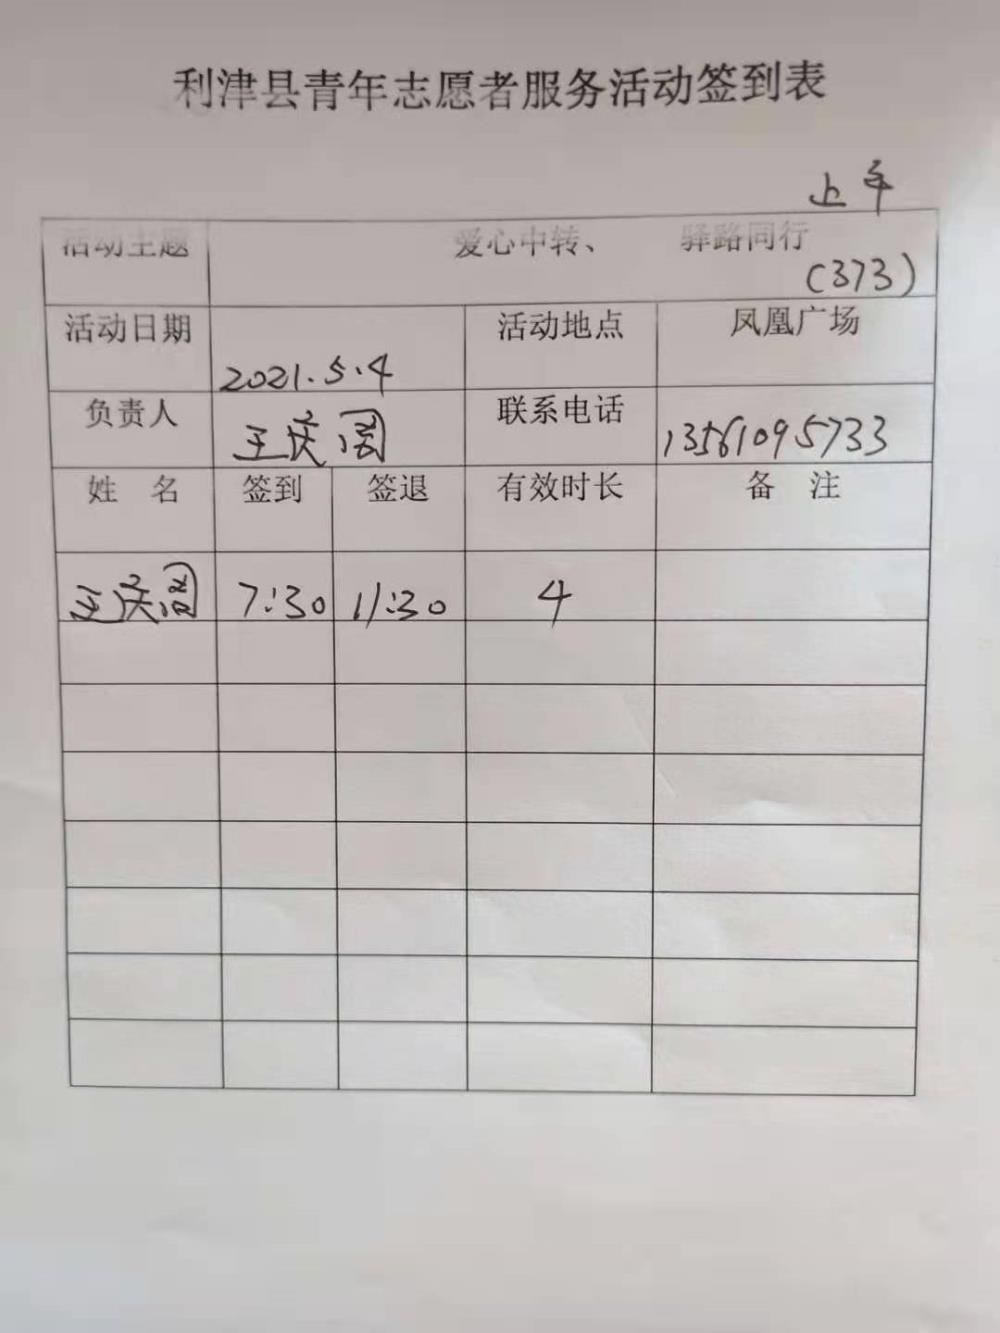 利津县青年志愿者服务活动签到表
上午
活动主题 爱心中转、 驿路同行
(373)
活动日期 2021.5.4 活动地点 凤凰广场
负责人 王庆阁 联系电话 13561095733
姓 名 签到 签退 有效时长 备 注
王庆阁 7:30 11:30 4